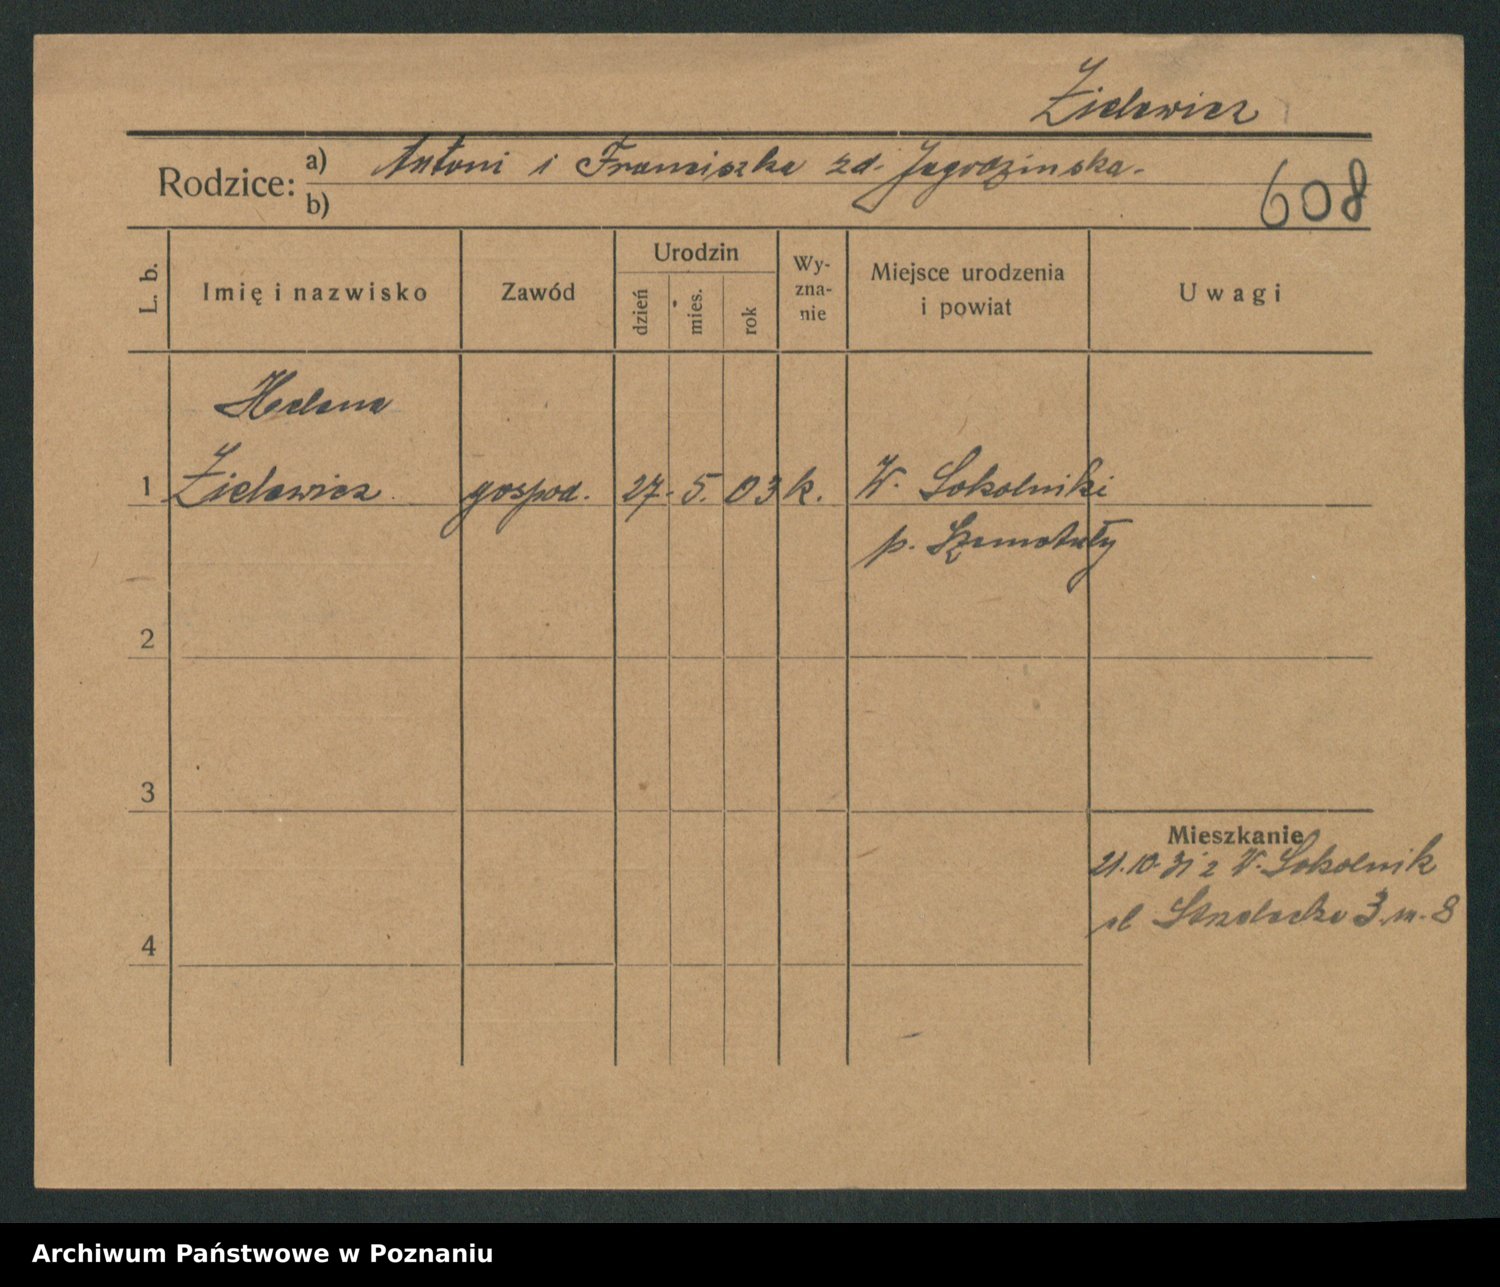 Zielewicz
Rodzice: a) Antoni i Franciszka zd. Jagodzinska.
b)
608
L. b.
Imię i nazwisko
Zawód
Urodzin
dzień
mies.
rok
Wy-
zna-
nie
Miejsce urodzenia
i powiat
Uwagi
Helena
1 Zielewicz gospod. 27. 5. 03 k. W. Sokolniki
p. Szamotuły
2
3
Mieszkanie
21.10.31 z W. Sokolnik
ul Strzelecka 3 m. 8
4
Archiwum Państwowe w Poznaniu